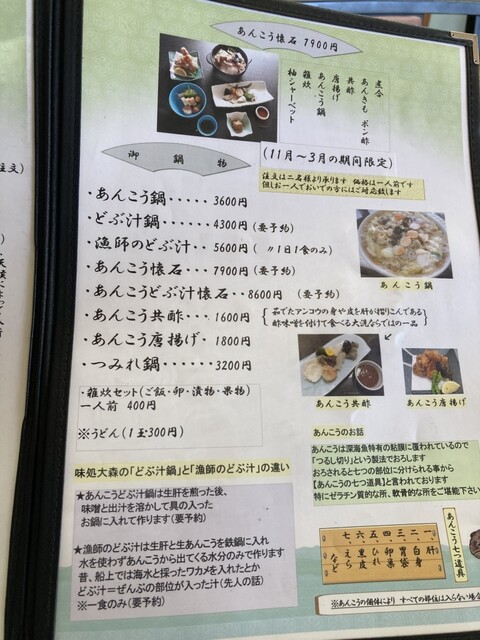 あんこう懐石 7900円
煮合
あんきも ポン酢
共酢
唐揚げ
あんこう鍋
雑炊
柚シャーベット
御鍋物
(11月～3月の期間限定)
注文は二名様より承ります 価格は一人前です
但しお一人でおいでの方にはご対応致します
・あんこう鍋・・・・・3600円
・どぶ汁鍋・・・・・・4300円(要予約)
・漁師のどぶ汁・・5600円( 〃1日1食のみ)
・あんこう懐石・・7900円(要予約)
・あんこうどぶ汁懐石・・8600円 (要予約)
・あんこう共酢・・1600円
・あんこう唐揚げ・1800円
・つみれ鍋・・・・・3200円
あんこう鍋
茹でたアンコウの身や皮を肝が摺りこんである
酢味噌を付けて食べる大洗ならではの一品
あんこう共酢
あんこう唐揚げ
・雑炊セット(ご飯・卵・漬物・果物)
一人前 400円
※うどん(1玉300円)
味処大森の「どぶ汁鍋」と「漁師のどぶ汁」の違い
★あんこうどぶ汁鍋は生肝を煎った後、
味噌と出汁を溶かして具の入った
お鍋に入れて作ります(要予約)
★漁師のどぶ汁は生肝と生あんこうを鉄鍋に入れ
水を使わずあんこうから出てくる水分のみで作ります
昔、船上では海水と採ったワカメを入れたとか
どぶ汁=ぜんぶの部位が入った汁(先人の話)
※一食のみ(要予約)
あんこうのお話
あんこうは深海魚特有の粘膜に覆われているので
「つるし切り」という製法でおろします
おろされると七つの部位に分けられる事から
【あんこうの七つ道具】と言われております
特にゼラチン質的な所、軟骨的な所をご堪能下さい
あんこう七つ道具
一、肝
二、白身
三、胃袋
四、卵巣
五、ひれ
六、黒皮
七、えら
など
※あんこうの個体により すべての部位は入らない場合